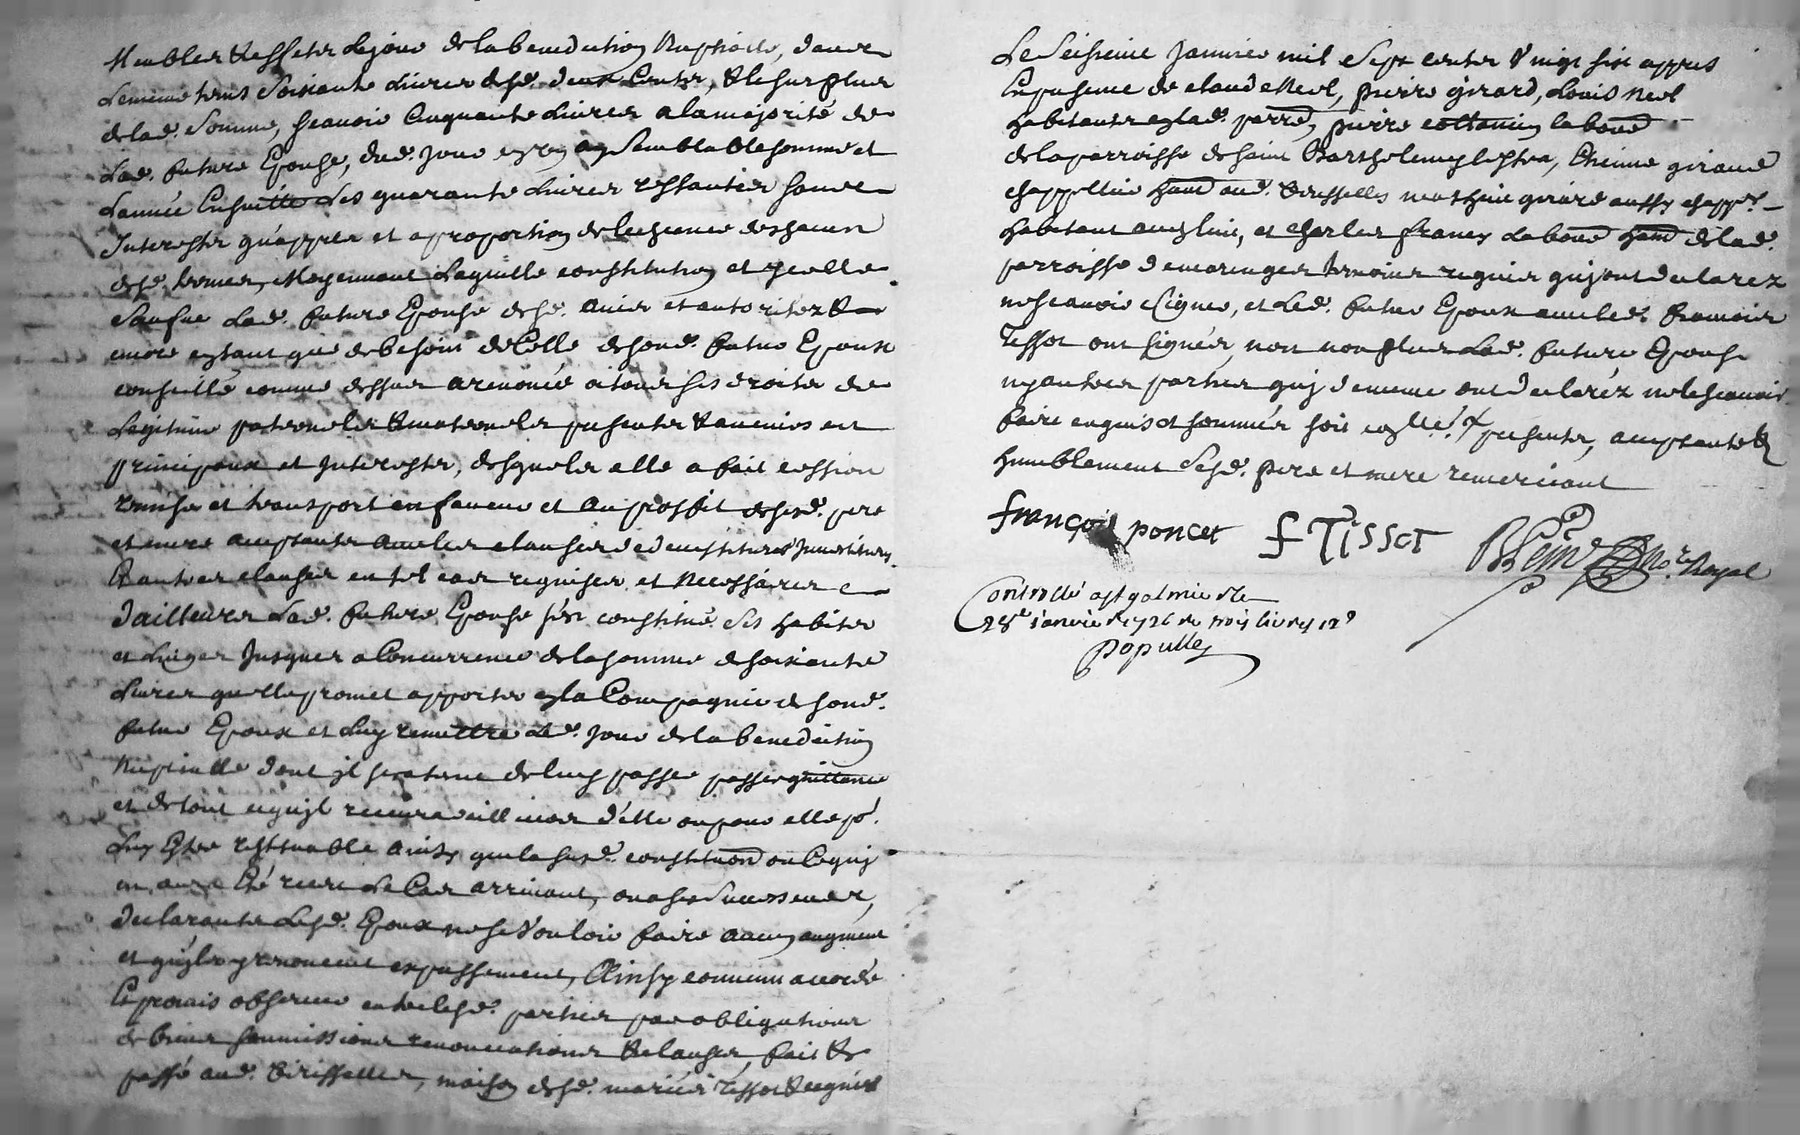 Meubles & effets le jour de la benediction nuptialle, dans
le mesme tems soixante livres desd. deux cents, & le surplus
de lad. somme, scavoir cinquante livres a la majorité de
lad. future Epouse, dud. jour en un an semblable somme et
l'année ensuitte les quarante livres restantes sans
Interests qu'apprès et a proportion de l'escheance de chacun
desd. termes, Moyennant laquelle constitution et icelle
sauſve lad. future Epouse desd. avis et autoritez &
encore en tant que de besoin de celle de sond. futur Epoux
conseillé comme dessus a renoncé a tous ses droits de
Legitime paternels & maternels presents & avenirs en
principaux et Interests, desquels elle a fait cession
remise et transport en faveur et au proffit de sesd. pere
et mere acceptants avec les clauses de devestitures Investitures
& autres clauses en tel cas requises et necessaires
d'ailleurs lad. future Epouse s'est constitué ses habits
et linges jusques a concurrence de la somme de soixante
livres quelle promet apporter en la compagnie de sond.
futur Epoux et luy remettre led. jour de la benediction
nuptialle dont il sera tenu de luy passer quittance
et de tout ce qu'il recevra d'elle ou pour elle p.
luy estre restituable ainsy que la susd. constitution ou ce qui
en aura Eté receu le cas arrivant, ou a ses successeurs,
declarants lesd. Epoux ne se vouloir faire aucun augment
et qu'ils y renoncent expressement, Ainsy convenu accordé
& promis observer entre lesd. parties par obligations
de biens soumissions renonciations & clauses, fait &
passé aud. Virissettes, maison desd. mariés Tissot & regnié
Le seisieme Janvier mil sept cents vingt six apprès
En presence de claude Neel, pierre girard, Louis Neel
habitants en lad. parre, pierre cottancin laboure
de la parroisse de saint Barthelemy lestra, Etienne giraud
chappellier habitant aud. Virissettes mathieu girard aussy chappr.
habitant aud. lieu, et charles francy laboure habt de lad.
parroisse de maringes temoins requis qui ont declarez
ne scavoir signer, et led. futur Epoux avec led. francois
Tissot ont signés, non non plus lad. future Epouse
ny autres parties qui de meme ont declaréz ne le scavoir
faire enquis et sommés
humblement sesd. pere et mere remerciant
françois poncet f Tissot
Royal
Controllé a st galmier le
28e janvier 1726 Re trois livres 12s
populle